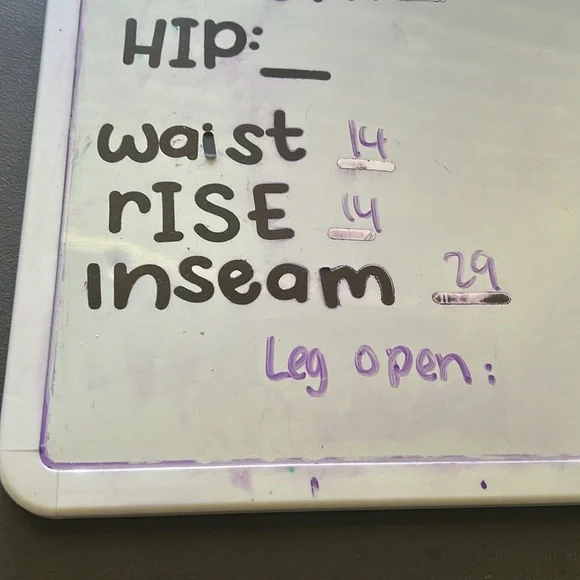 HIP:
waist 14
rISE 14
Inseam 29
Leg open: